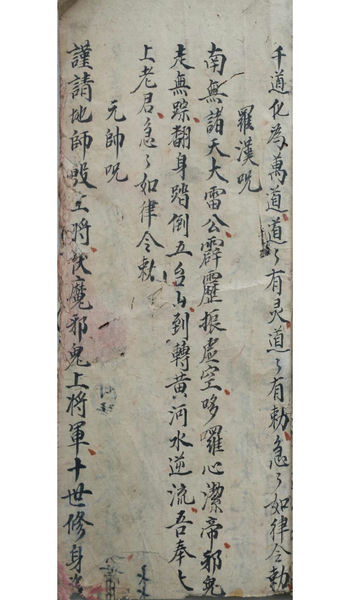 千道化為萬道道々有灵道々有勅急々如律令勅
羅漢呪
南無諸天大雷公霹靂振虛空哆囉心潔帝邪鬼
走無踪翻身踏倒五台山到轉黃河水逆流吾奉太
上老君急々如律令勅
元帥呪
謹請地師殷上將伏魔邪鬼上將軍十世修身